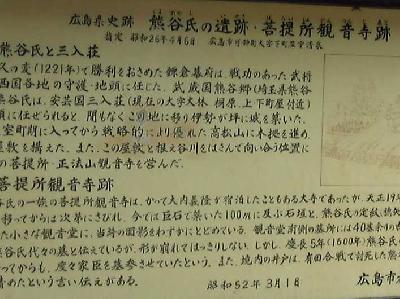 広島県史跡 熊谷氏の遺跡・菩提所観音寺跡
指定 昭和26年4月6日 広島市可部町大字下町屋
熊谷氏と三入荘
久の変(1221年)で勝利をおさめた鎌倉幕府は、戦功のあった武将
西国各地の守護・地頭に任じた。武蔵国熊谷郷(埼玉県熊谷
熊谷氏は、安芸国三入荘(現在の大字大林 桐原 上下町屋付近)
頭に任ぜられると 間もなくこの地に移り伊勢が坪に城を築いた。
室町期に入ってから戦略的により優れた高松山に本拠を進め、
屋敷を構えた。また、この屋敷と根谷川をはさんで向い合う位置に
の菩提所・正法山観音寺を営んだ。
菩提所観音寺跡
谷氏の一族の菩提所観音寺は、かつて大内義隆が宿泊したこともある大寺であったが、天正19年
移ってからは次第にさびれ、今では巨石で築いた100mに及ぶ石垣と、熊谷氏の定紋
た小さな観音堂に、当時の面影をわずかにとどめている。観音堂南側の墓所には40基余りの
熊谷氏代々の墓と伝えているが、形が崩れてはっきりしない。しかし、慶長5年(1600年)熊谷氏の
ってからも、度々家臣を墓参させていたという。また、境内の井戸は、有田合戦で討死した熊
清めたという言い伝えがある。
昭和52年3月1日 広島市